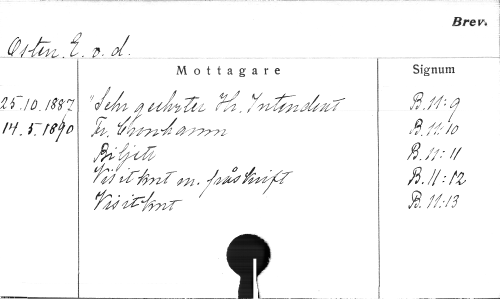 Brev.
Osten. E. v. d.
Mottagare Signum
25.10.1887 "Sehr geehrter Hr. Intendent B. 11:9
14.5.1890 Fr. Cronhamm B. 11:10
Biljett B. 11:11
Visitkort m. påskrift B. 11:12
Visitkort B. 11:13